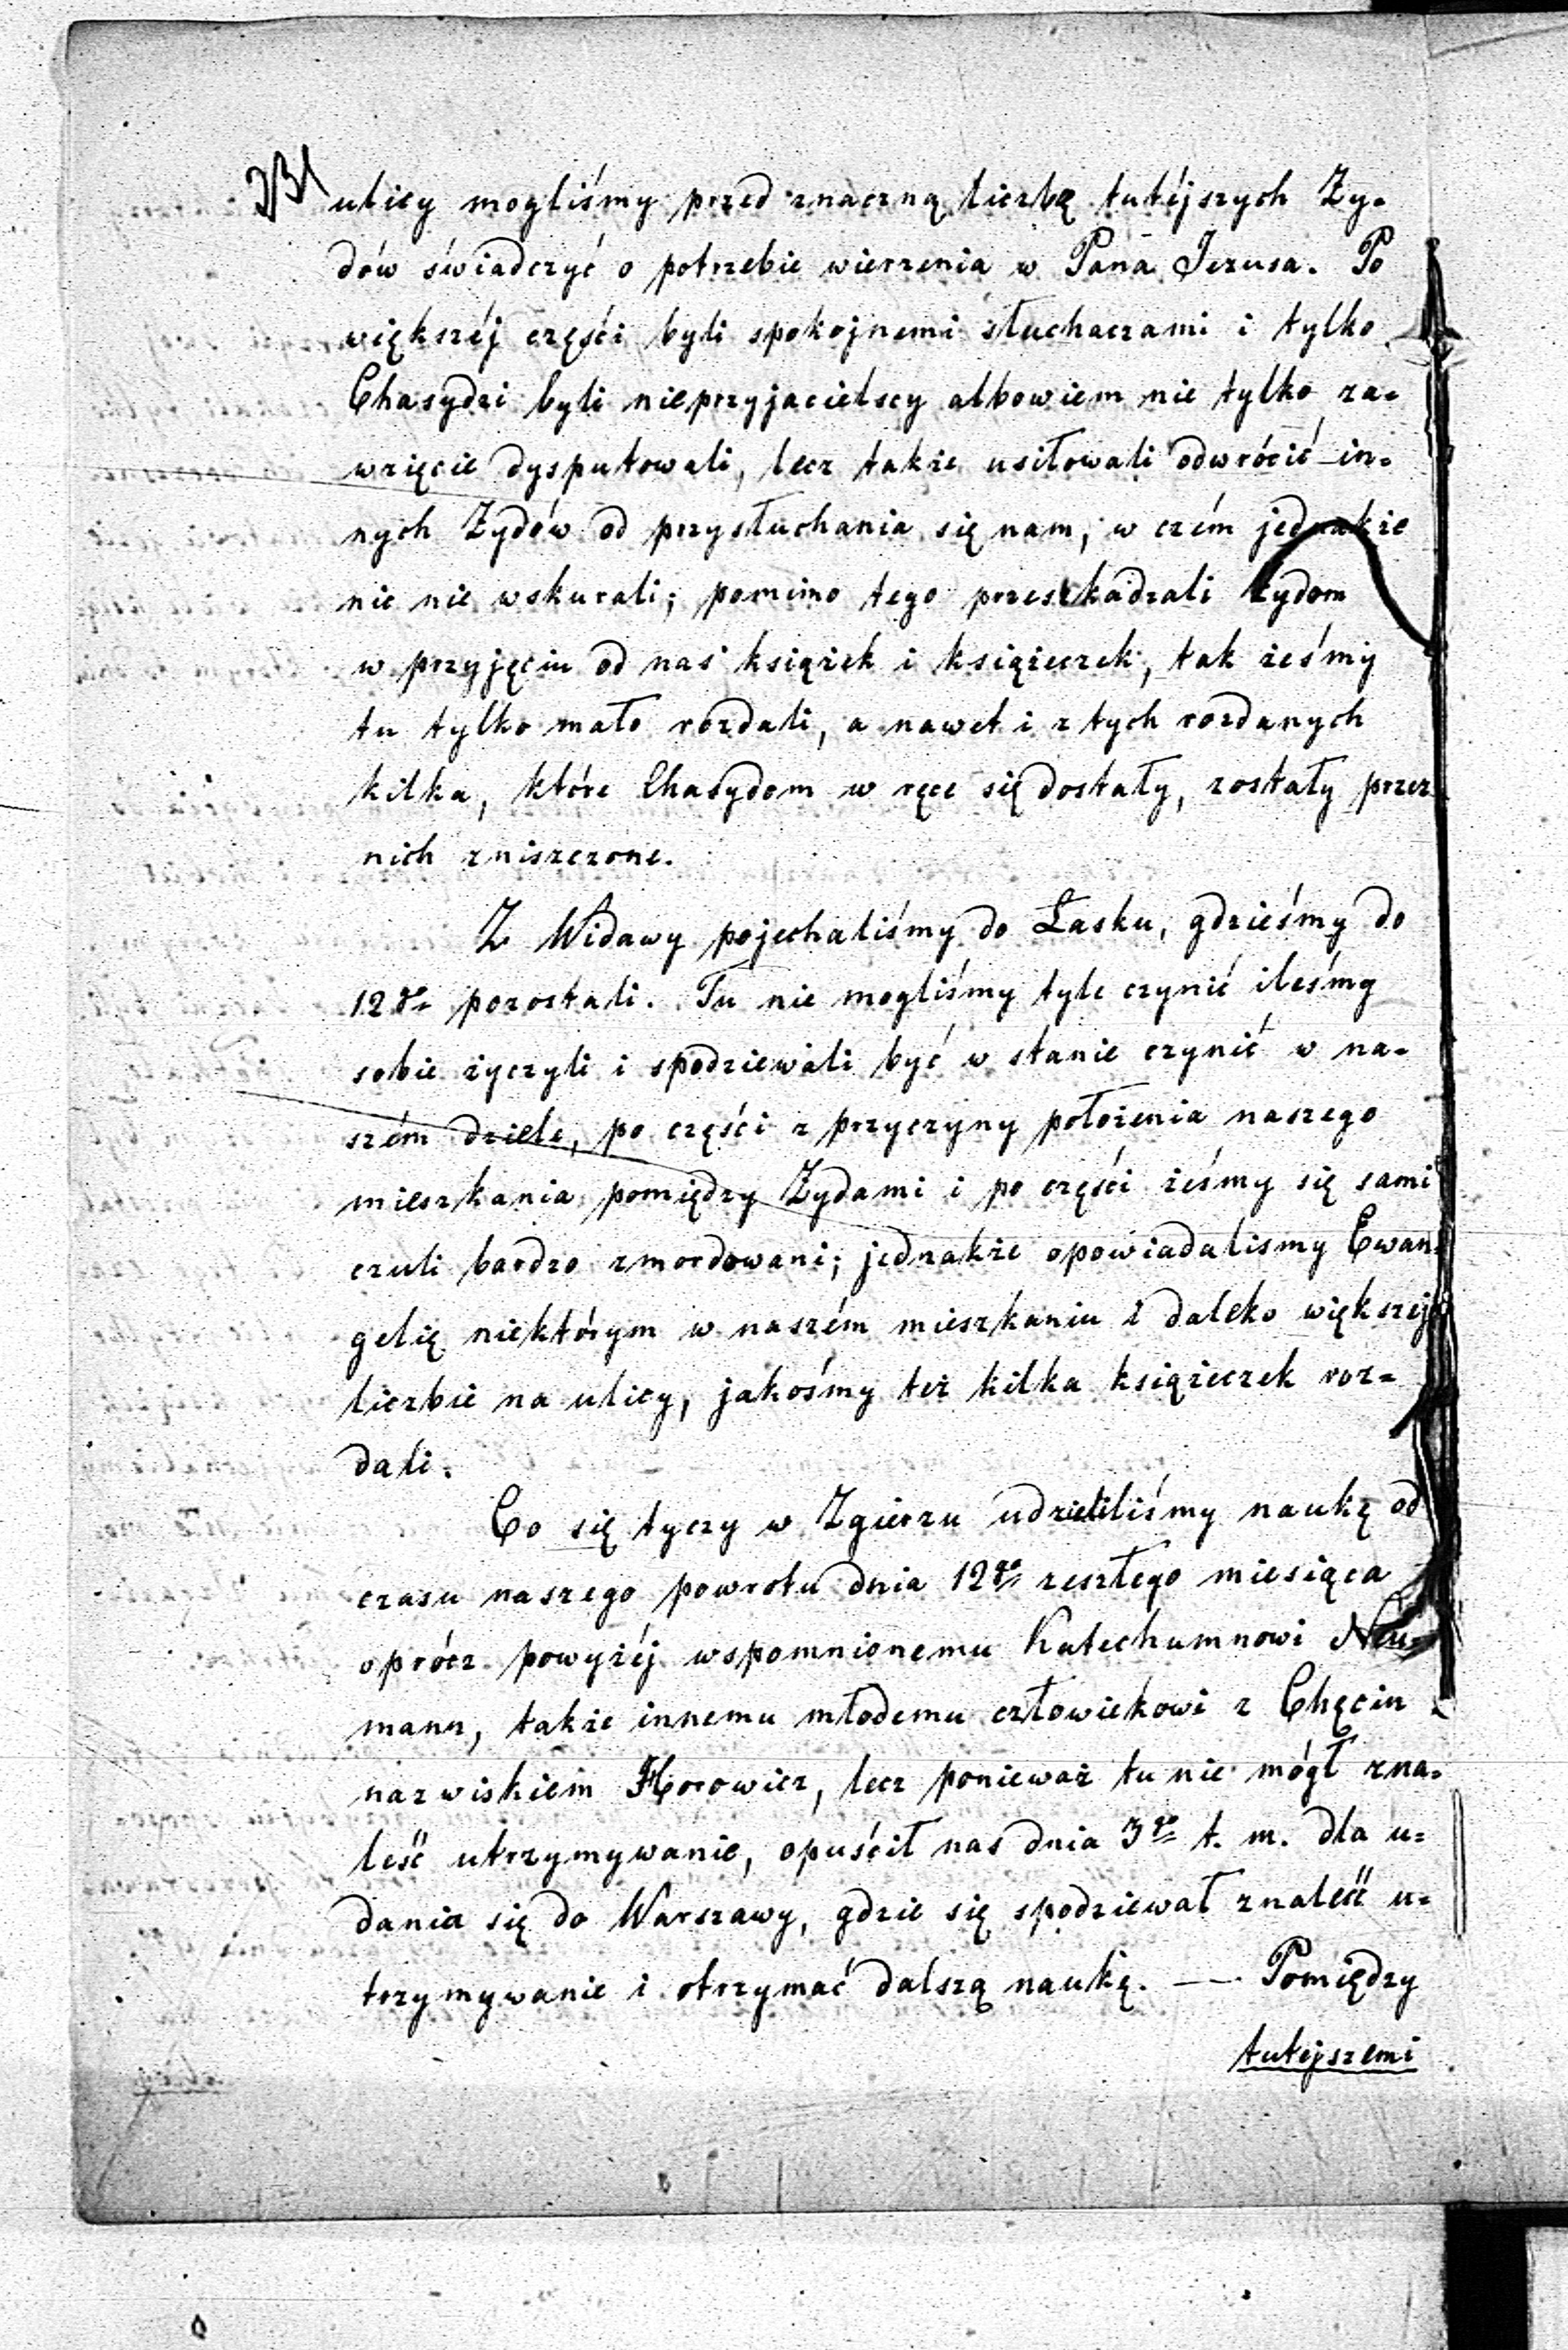 331
ulicy mogliśmy przed znaczną liczbę tutéjszych Ży-
dów świadczyć o potrzebie wierzenia w Pana Jezusa. Po
większéj części byli spokojnemi słuchaczami i tylko
Chasydzi byli nieprzyjacielscy albowiem nie tylko za-
wzięcie dysputowali, lecz także usiłowali odwrócić in-
nych Żydów od przysłuchania się nam, w czém jednakże
nic nie wskurali; pomimo tego przeszkadzali Żydom
w przyjęciu od nas książek i książeczek, tak żeśmy
tu tylko mało rozdali, a nawet i z tych rozdanych
kilka, które Chasydom w ręce się dostały, zostały przez
nich zniszczone.
Z Widawy pojechaliśmy do Łasku, gdzieśmy do
12go pozostali. Tu nie mogliśmy tyle czynić ileśmy
sobie życzyli i spodziewali być w stanie czynić w na-
szém dziele, po części z przyczyny położenia naszego
mieszkania pomiędzy Żydami i po części żeśmy się sami
czuli bardzo zmordowani; jednakże opowiadalismy Ewan-
gelię niektórym w naszém mieszkaniu i daleko większej
liczbie na ulicy, jakośmy też kilka książeczek roz-
dali.
Co się tyczy w Zgierzu udzieliliśmy naukę od
czasu naszego powrotu dnia 12go zeszłego miesiąca
oprócz powyżéj wspomnionemu Katechumnowi Neu-
mann, także innemu młodemu człowiekowi z Chęcin
nazwiskiem Horowicz, lecz ponieważ tu nie mógł zna-
leść utrzymywanie, opuścił nas dnia 3go t. m. dla u-
dania się do Warszawy, gdzie się spodziewał znaleść u-
trzymywanie i otrzymać dalszą naukę. — Pomiędzy
tutejszemi